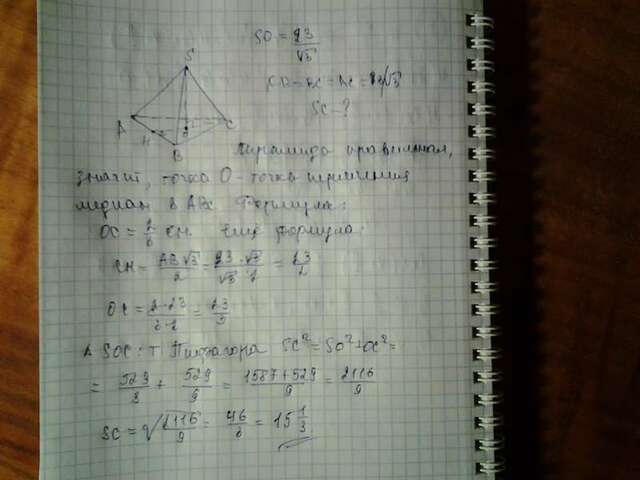 SO = 23/√3
AB = BC = AC = 23/√3
SC - ?
S
A
C
H
O
B
Пирамида правильная,
значит, точка O - точка пересечения
медиан в ABC. Формула:
OC = 2/3 CH. Ещё формула:
CH = AB√3/2 = 23·√3/√3·2 = 23/2
OC = 2·23/3·2 = 23/3
Δ SOC: т Пифагора SC² = SO² + OC² =
= 529/3 + 529/9 = 1587+529/9 = 2116/9
SC = √2116/9 = 46/3 = 15 1/3